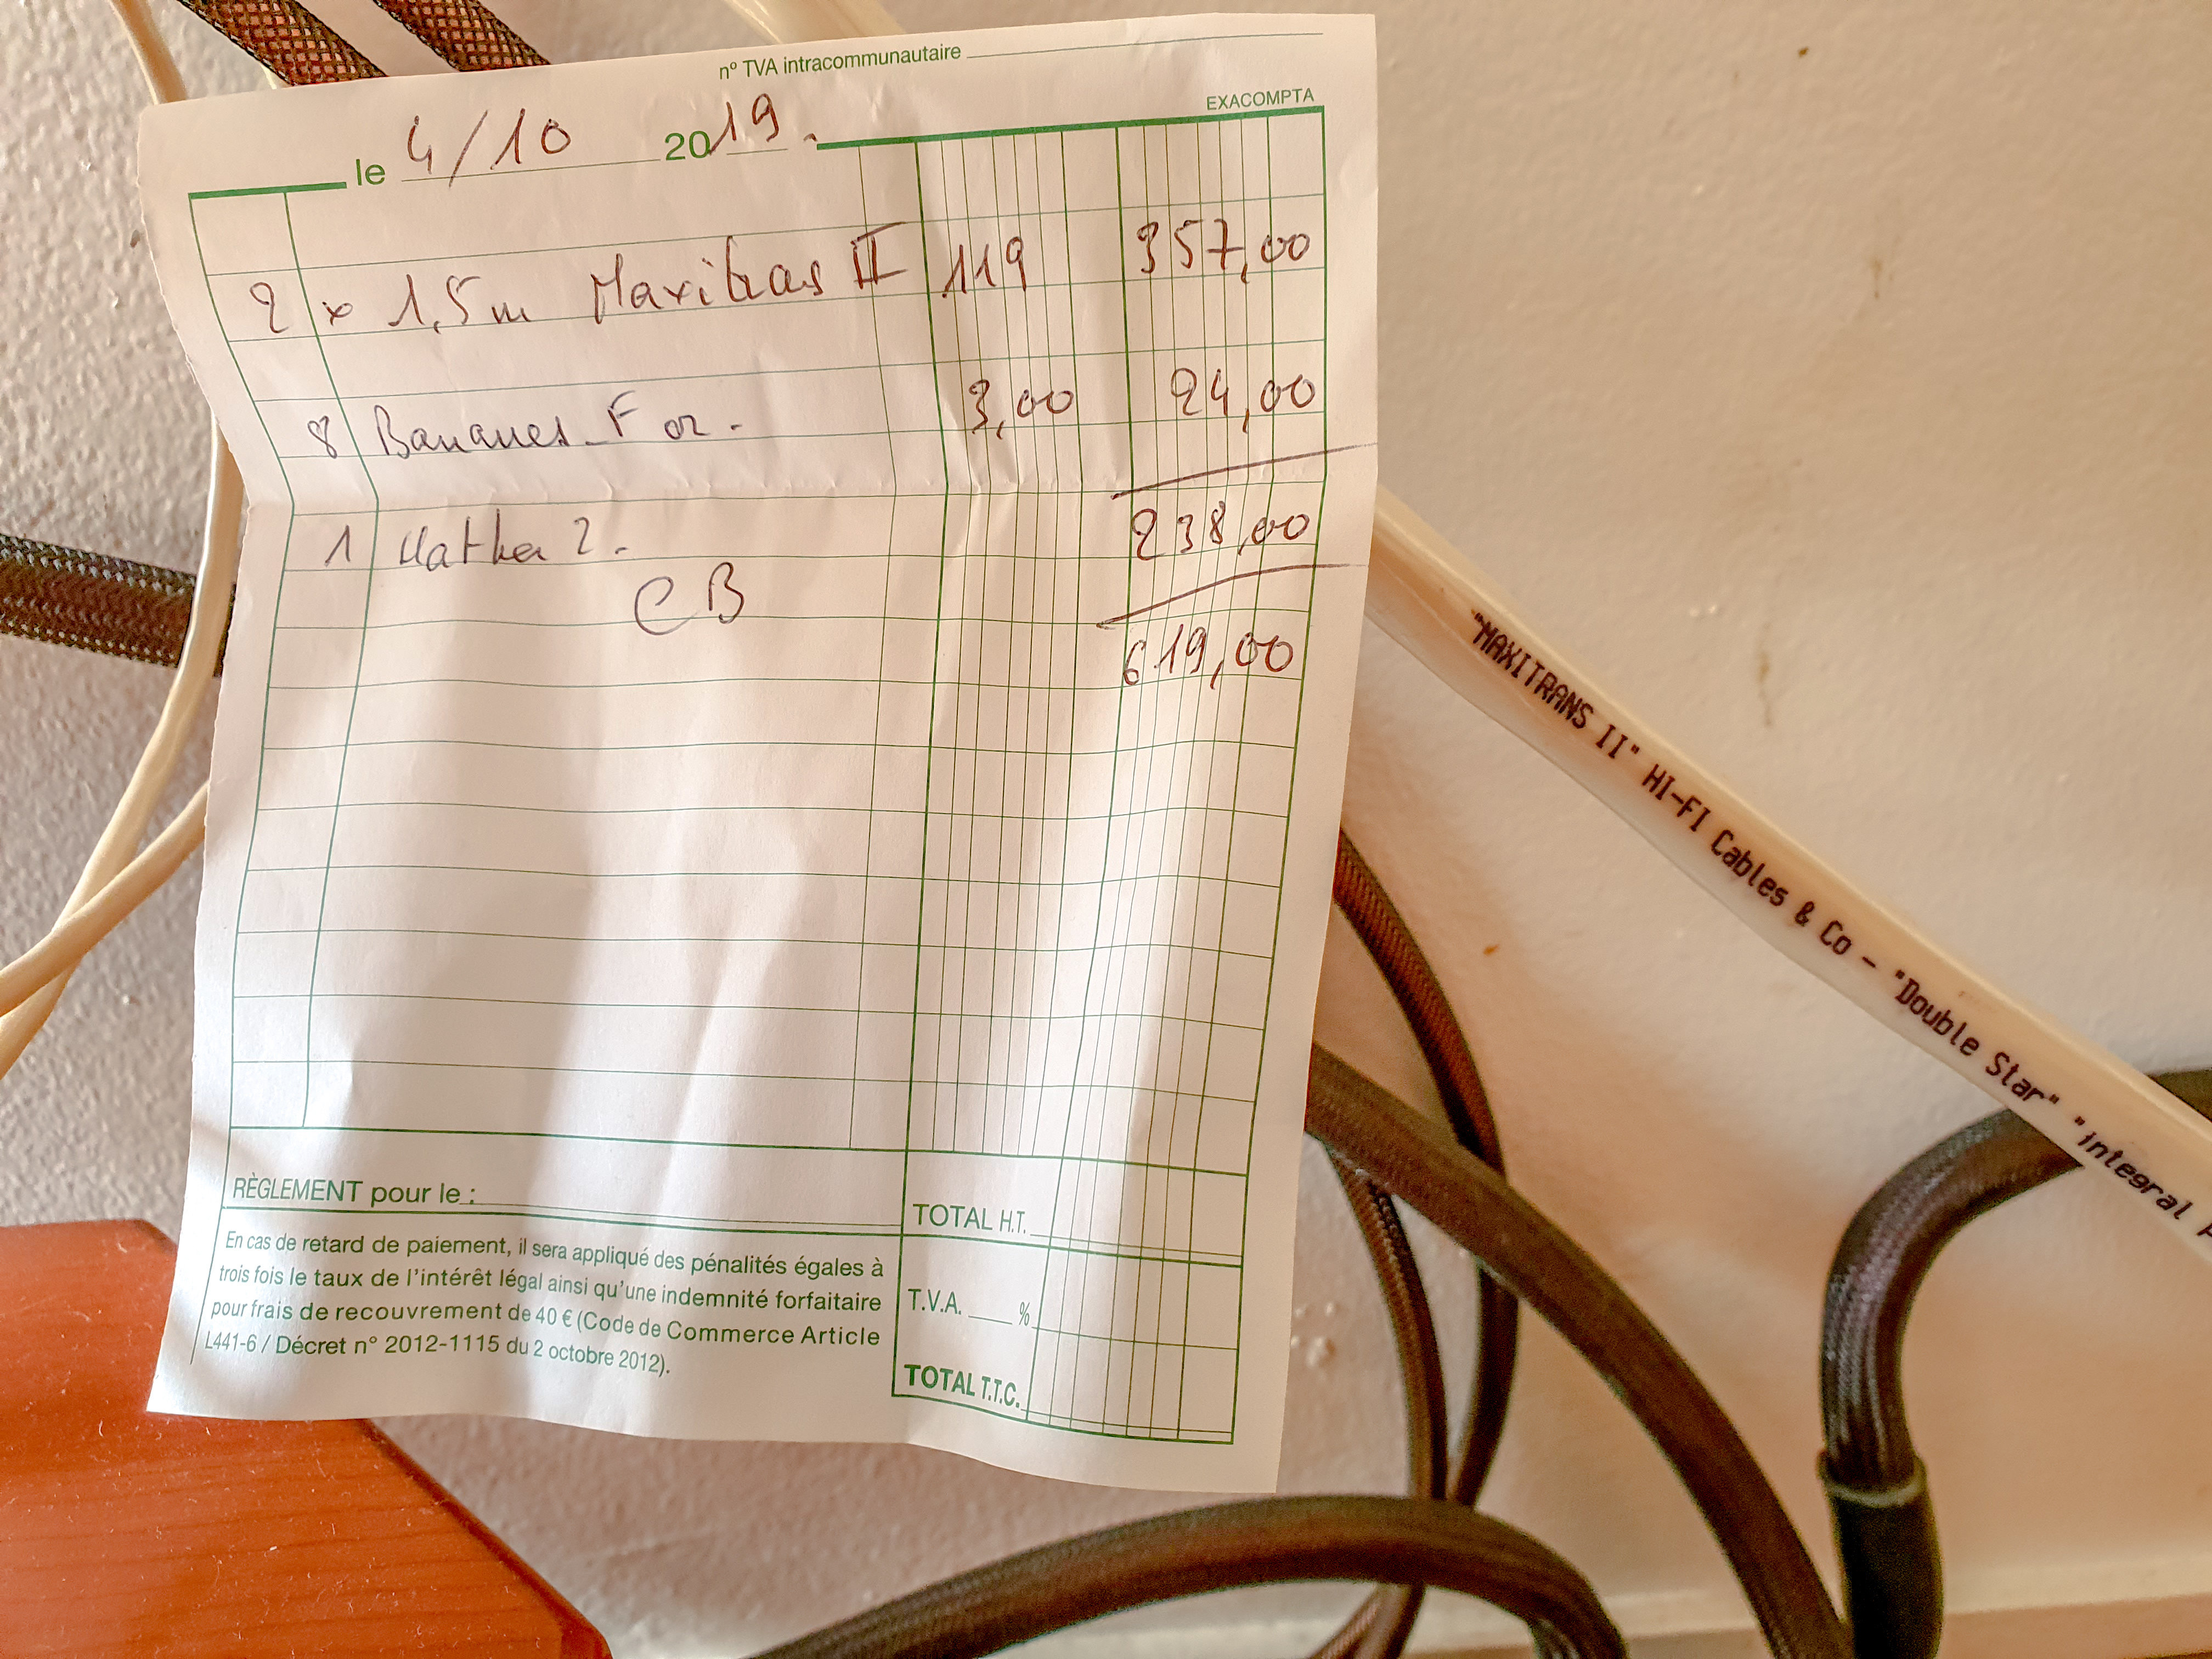 n° TVA intracommunautaire
EXACOMPTA
le 4/10 2019.
2 x 1,5m Maxitrans II 119 357,00
8 Bananes F or. 3,00 24,00
1 2. 238,00
CB
619,00
RÈGLEMENT pour le :
En cas de retard de paiement, il sera appliqué des pénalités égales à
trois fois le taux de l'intérêt légal ainsi qu'une indemnité forfaitaire
pour frais de recouvrement de 40 € (Code de Commerce Article
L441-6 / Décret n° 2012-1115 du 2 octobre 2012).
TOTAL H.T.
T.V.A. %
TOTAL T.T.C.
"MAXITRANS II" HI-FI Cables & Co - "Double Star" "integral